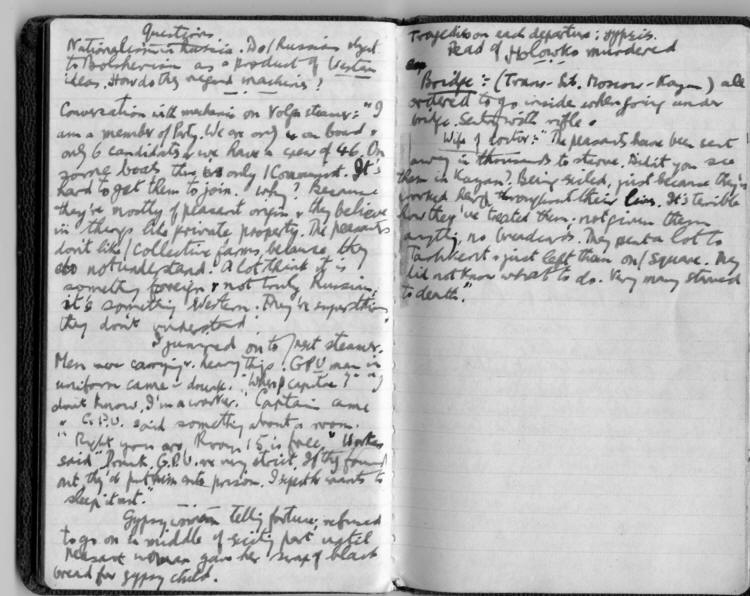 Questions
Nationalism in Russia. Do / Russians object
to Bolshevism as a product of Western
ideas. How do they regard machines?
Conversation with mechanic on Volga steamer: "I
am a member of Party. We are only on board &
only 6 candidates & we have a crew of 46. On
some boats there is only 1 Communist. It's
hard to get them to join. Why? Because
they're mostly of peasant origin & they believe
in things like private property. The peasants
don't like / collective farms because they
do not understand. A lot think it is
something foreign & not truly Russian,
it's something Western. They're superstitious,
they don't understand.
I jumped on to / next steamer.
Men were carrying heavy things. GPU man in
uniform came - drunk. "Where / captain?" "I
don't know, I'm a worker." Captain came
& G.P.U. said something about a room.
"Right you are, Room 15 is free." Worker
said "Drunk. G.P.U. are very strict. If they found
out, they'd put him into prison. I expect he wants to
sleep it out."
Gypsy woman telling fortune, refused
to go on in middle of exciting part until
peasant woman gave her scrap of black
bread for gypsy child.
Tragedies on each departure: gypsies.
Head of murdered
Bridge: (Trans-Sib. Moscow-Kazan) all
ordered to go inside when going under
bridge. Sentry with rifle.
Wife of : "The peasants have been sent
away in thousands to starve. Didn't you see
them in Kazan? Being exiled, just because they've
worked hard throughout their lives. It's terrible
how they've treated them; not given them
anything, no breadcards. They sent a lot to
Tashkent & just left them on / square. They
did not know what to do. Very many starved
to death."